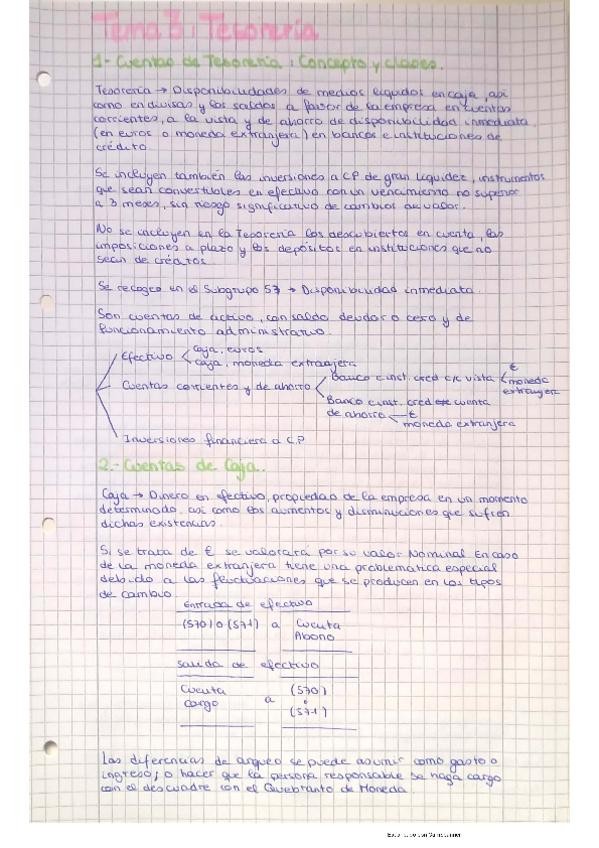 Tema 3: Tesorería
1- Cuentas de Tesorería: Concepto y clases.
Tesorería → Disponibilidades de medios líquidos en caja, así
como en divisas y los saldos a favor de la empresa en cuentas
corrientes, a la vista y de ahorro de disponibilidad inmediata
(en euros o moneda extranjera) en bancos e instituciones de
crédito.
Se incluyen también las inversiones a CP de gran liquidez, instrumentos
que sean convertibles en efectivo con un vencimiento no superior
a 3 meses, sin riesgo significativo de cambios de valor.
No se incluyen en la Tesorería los descubiertos en cuenta, las
imposiciones a plazo y los depósitos en instituciones que no
sean de créditos.
Se recogen en el Subgrupo 57 → Disponibilidad inmediata.
Son cuentas de activo, con saldo deudor o cero y de
funcionamiento administrativo.
Efectivo
Caja, euros
Caja, moneda extranjera
Cuentas corrientes y de ahorro
Banco e inst. cred c/c vista
€
moneda
extranjera
Banco e inst. cred cuenta
de ahorro
€
moneda extranjera
Inversiones financiera a C.P
2.- Cuentas de Caja.
Caja → Dinero en efectivo, propiedad de la empresa en un momento
determinado, así como los aumentos y disminuciones que sufren
dichas existencias.
Si se trata de € se valorará por su valor Nominal. En caso
de la moneda extranjera tiene una problemática especial
debido a las fluctuaciones que se producen en los tipos
de cambio.
Entrada de efectivo
(570) o (571) a Cuenta
Abono
Salida de efectivo
Cuenta
cargo
a
(570)
o
(571)
Las diferencias de arqueo se puede asumir como gasto o
ingreso; o hacer que la persona responsable se haga cargo
con el descuadre con el Quebranto de Moneda.